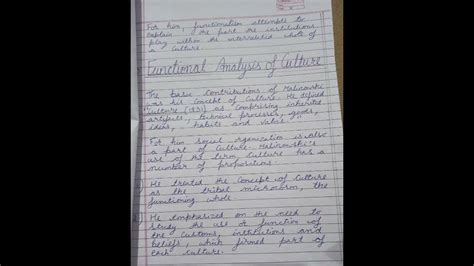 For him, functionalism attempts to
explain the part the institutions
play within the interrelated whole of
a culture.
Functional Analysis of Culture
The basic contributions of Malinowski
was his concept of culture. He defined
culture (1931) as comprising inherited
artifacts, technical processes, goods,
ideas, habits and values.
For him social organization is also
a part of culture. Malinowski's
use of the term culture has a
number of propositions.
He treated the concept of culture
as the tribal microcosm, the
functioning whole
He emphasized on the need to
study the use or function of
the customs, institutions and
beliefs, which formed part of
each culture.